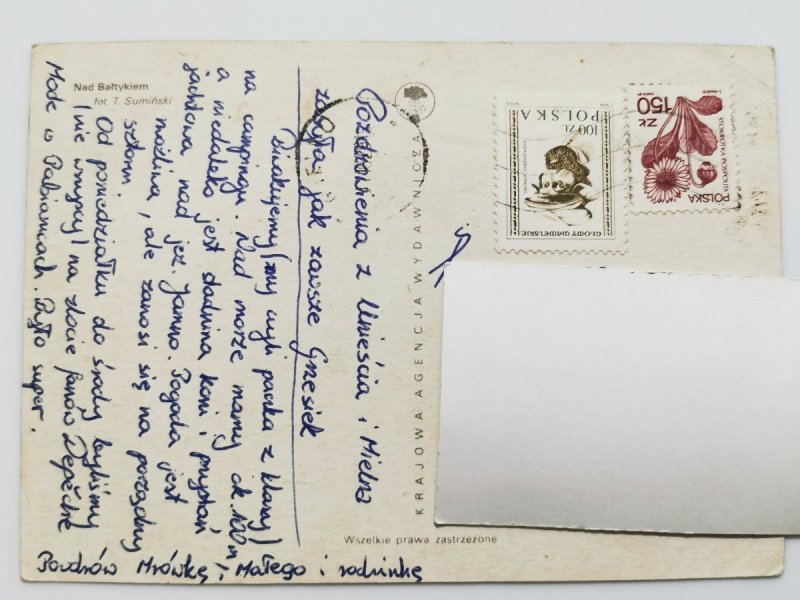 Nad Bałtykiem
fot. T. Sumiński
Pozdrowienia z Unieścia i Mielna
zasyła jak zawsze Grzesiek
Biwakujemy /my czyli paczka z klasy/
na campingu. Nad morze mamy ok. 100 m
a niedaleko jest stadnina koni i przystań
jachtowa nad jez. Jamno. Pogoda jest
możliwa, ale zanosi się na porządny
sztorm.
Od poniedziałku do środy byliśmy
/nie wszyscy/ na zlocie fanów Depeche
Mode w Pabianicach. Było super.
Pozdrów Mrówkę, Małego i rodzinkę
KRAJOWA AGENCJA WYDAWNICZA
Wszelkie prawa zastrzeżone
POLSKA
100 ZŁ
GŁOWY WAWELSKIE
150 ZŁ
STOKROTKA POSPOLITA
POLSKA